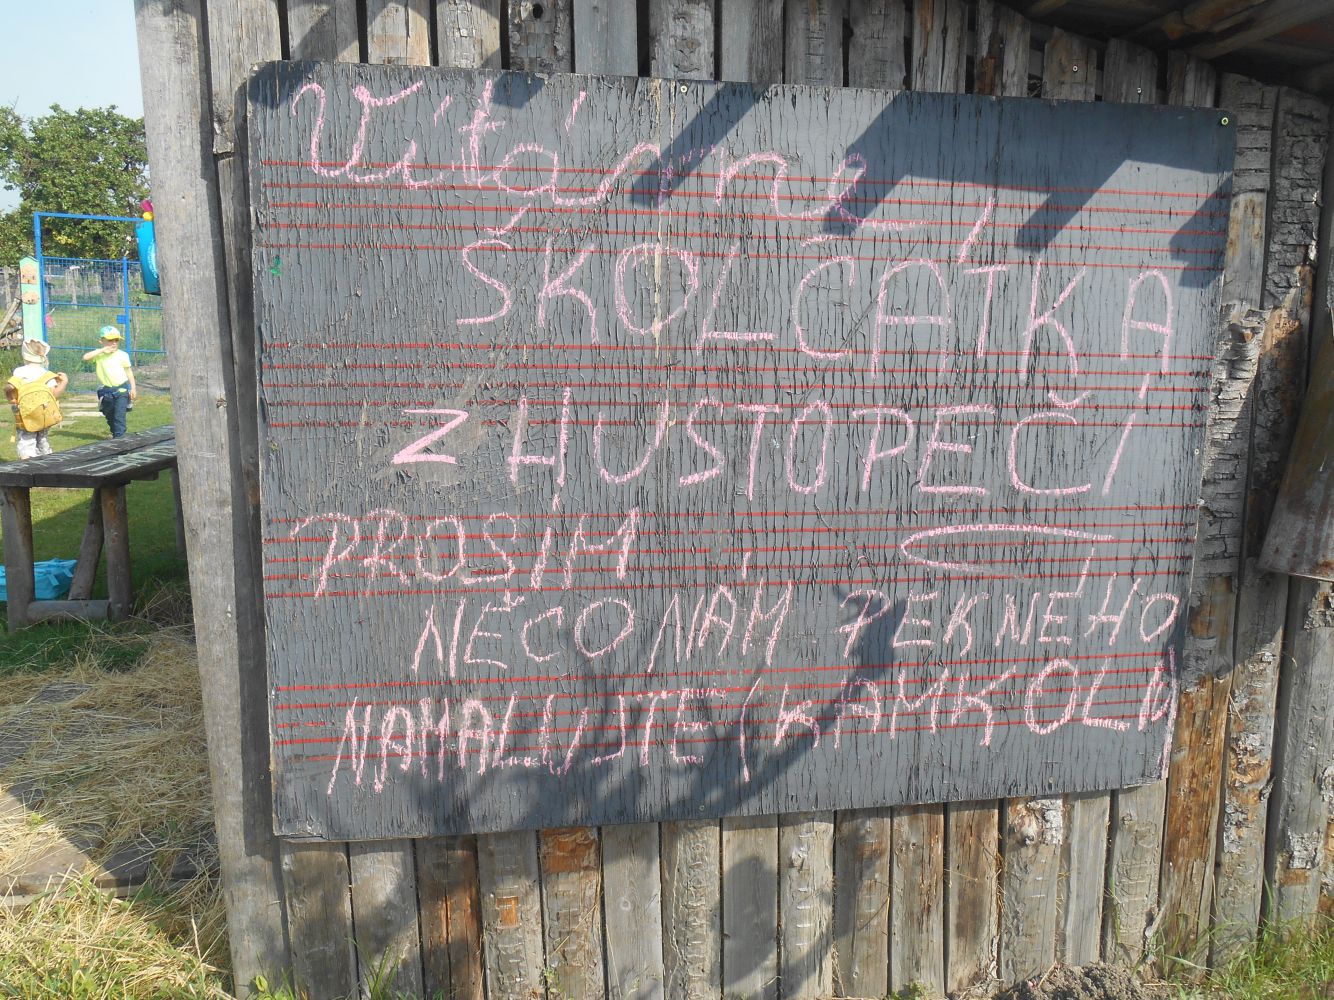 Vítáme
ŠKOLČÁTKA
Z HUSTOPEČÍ
PROSÍM
NĚCO NÁM PEKNÉHO
NAMALUJTE (KAMKOLIV)